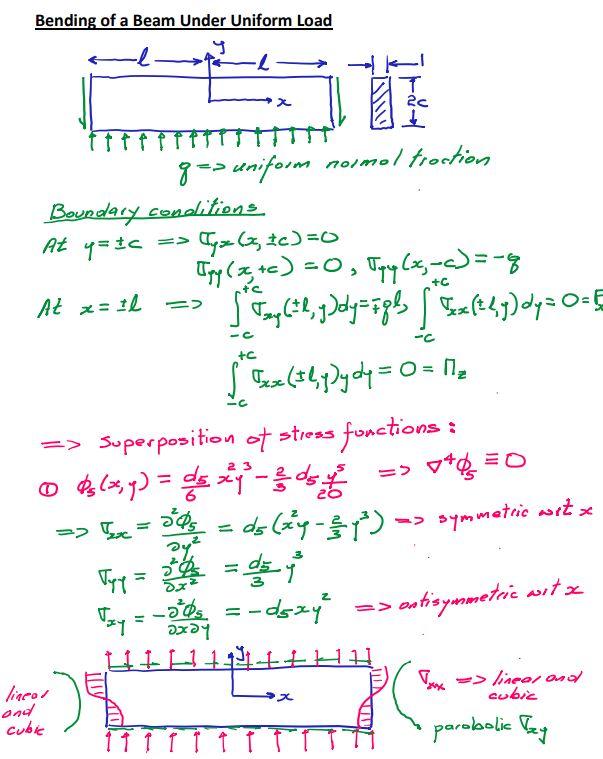 Bending of a Beam Under Uniform Load
l l y 1
x 2c
q => uniform normal traction
Boundary conditions
At y = ±c => σyx(x, ±c) = 0
σyy(x, +c) = 0, σyy(x, -c) = -q
At x = ±l => ∫_{-c}^{+c} σxy(±l, y)dy = ∓ql, ∫_{-c}^{+c} σxx(±l, y)dy = 0 = Fx
∫_{-c}^{+c} σxx(±l, y)y dy = 0 = Mz
=> Superposition of stress functions:
① φ5(x, y) = d5/6 x²y³ - 2/3 d5 y⁵/20 => ∇⁴φ5 ≡ 0
=> σxx = ∂²φ5/∂y² = d5(x²y - 2/3 y³) => symmetric wrt x
σyy = ∂²φ5/∂x² = d5/3 y³
σxy = -∂²φ5/∂x∂y = -d5xy² => antisymmetric wrt x
y
linear and cubic x σxx => linear and cubic
parabolic σxy